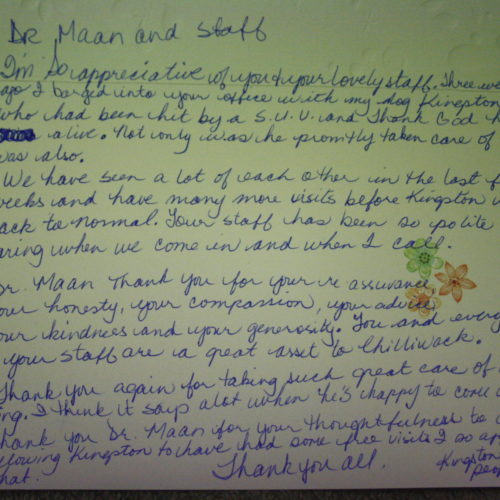 DR Maan and staff
I'm so appreciative of you & your lovely staff. Three we
ago I barged into your office with my dog Kingston
who had been hit by a S.U.V. and Thank God h
alive. Not only was he promtly taken care of
was also.
We have seen a lot of each other in the last f
eeks and have many more visits before Kingston
ack to normal. Your staff has been so polite
aring when we come in and when I call.
Dr. Maan Thank you for your re assurance,
our honesty, your compassion, your advice
our kindness and your generosity. You and every
your staff are a great asset to Chilliwack.
Thank you again for taking such great care of
ing. I think it says alot when he's happy to come
hank you Dr. Maan for your thoughtfulness to
llowing Kingston to have had some free visits I so ap
hat. Thank you all. Kingston